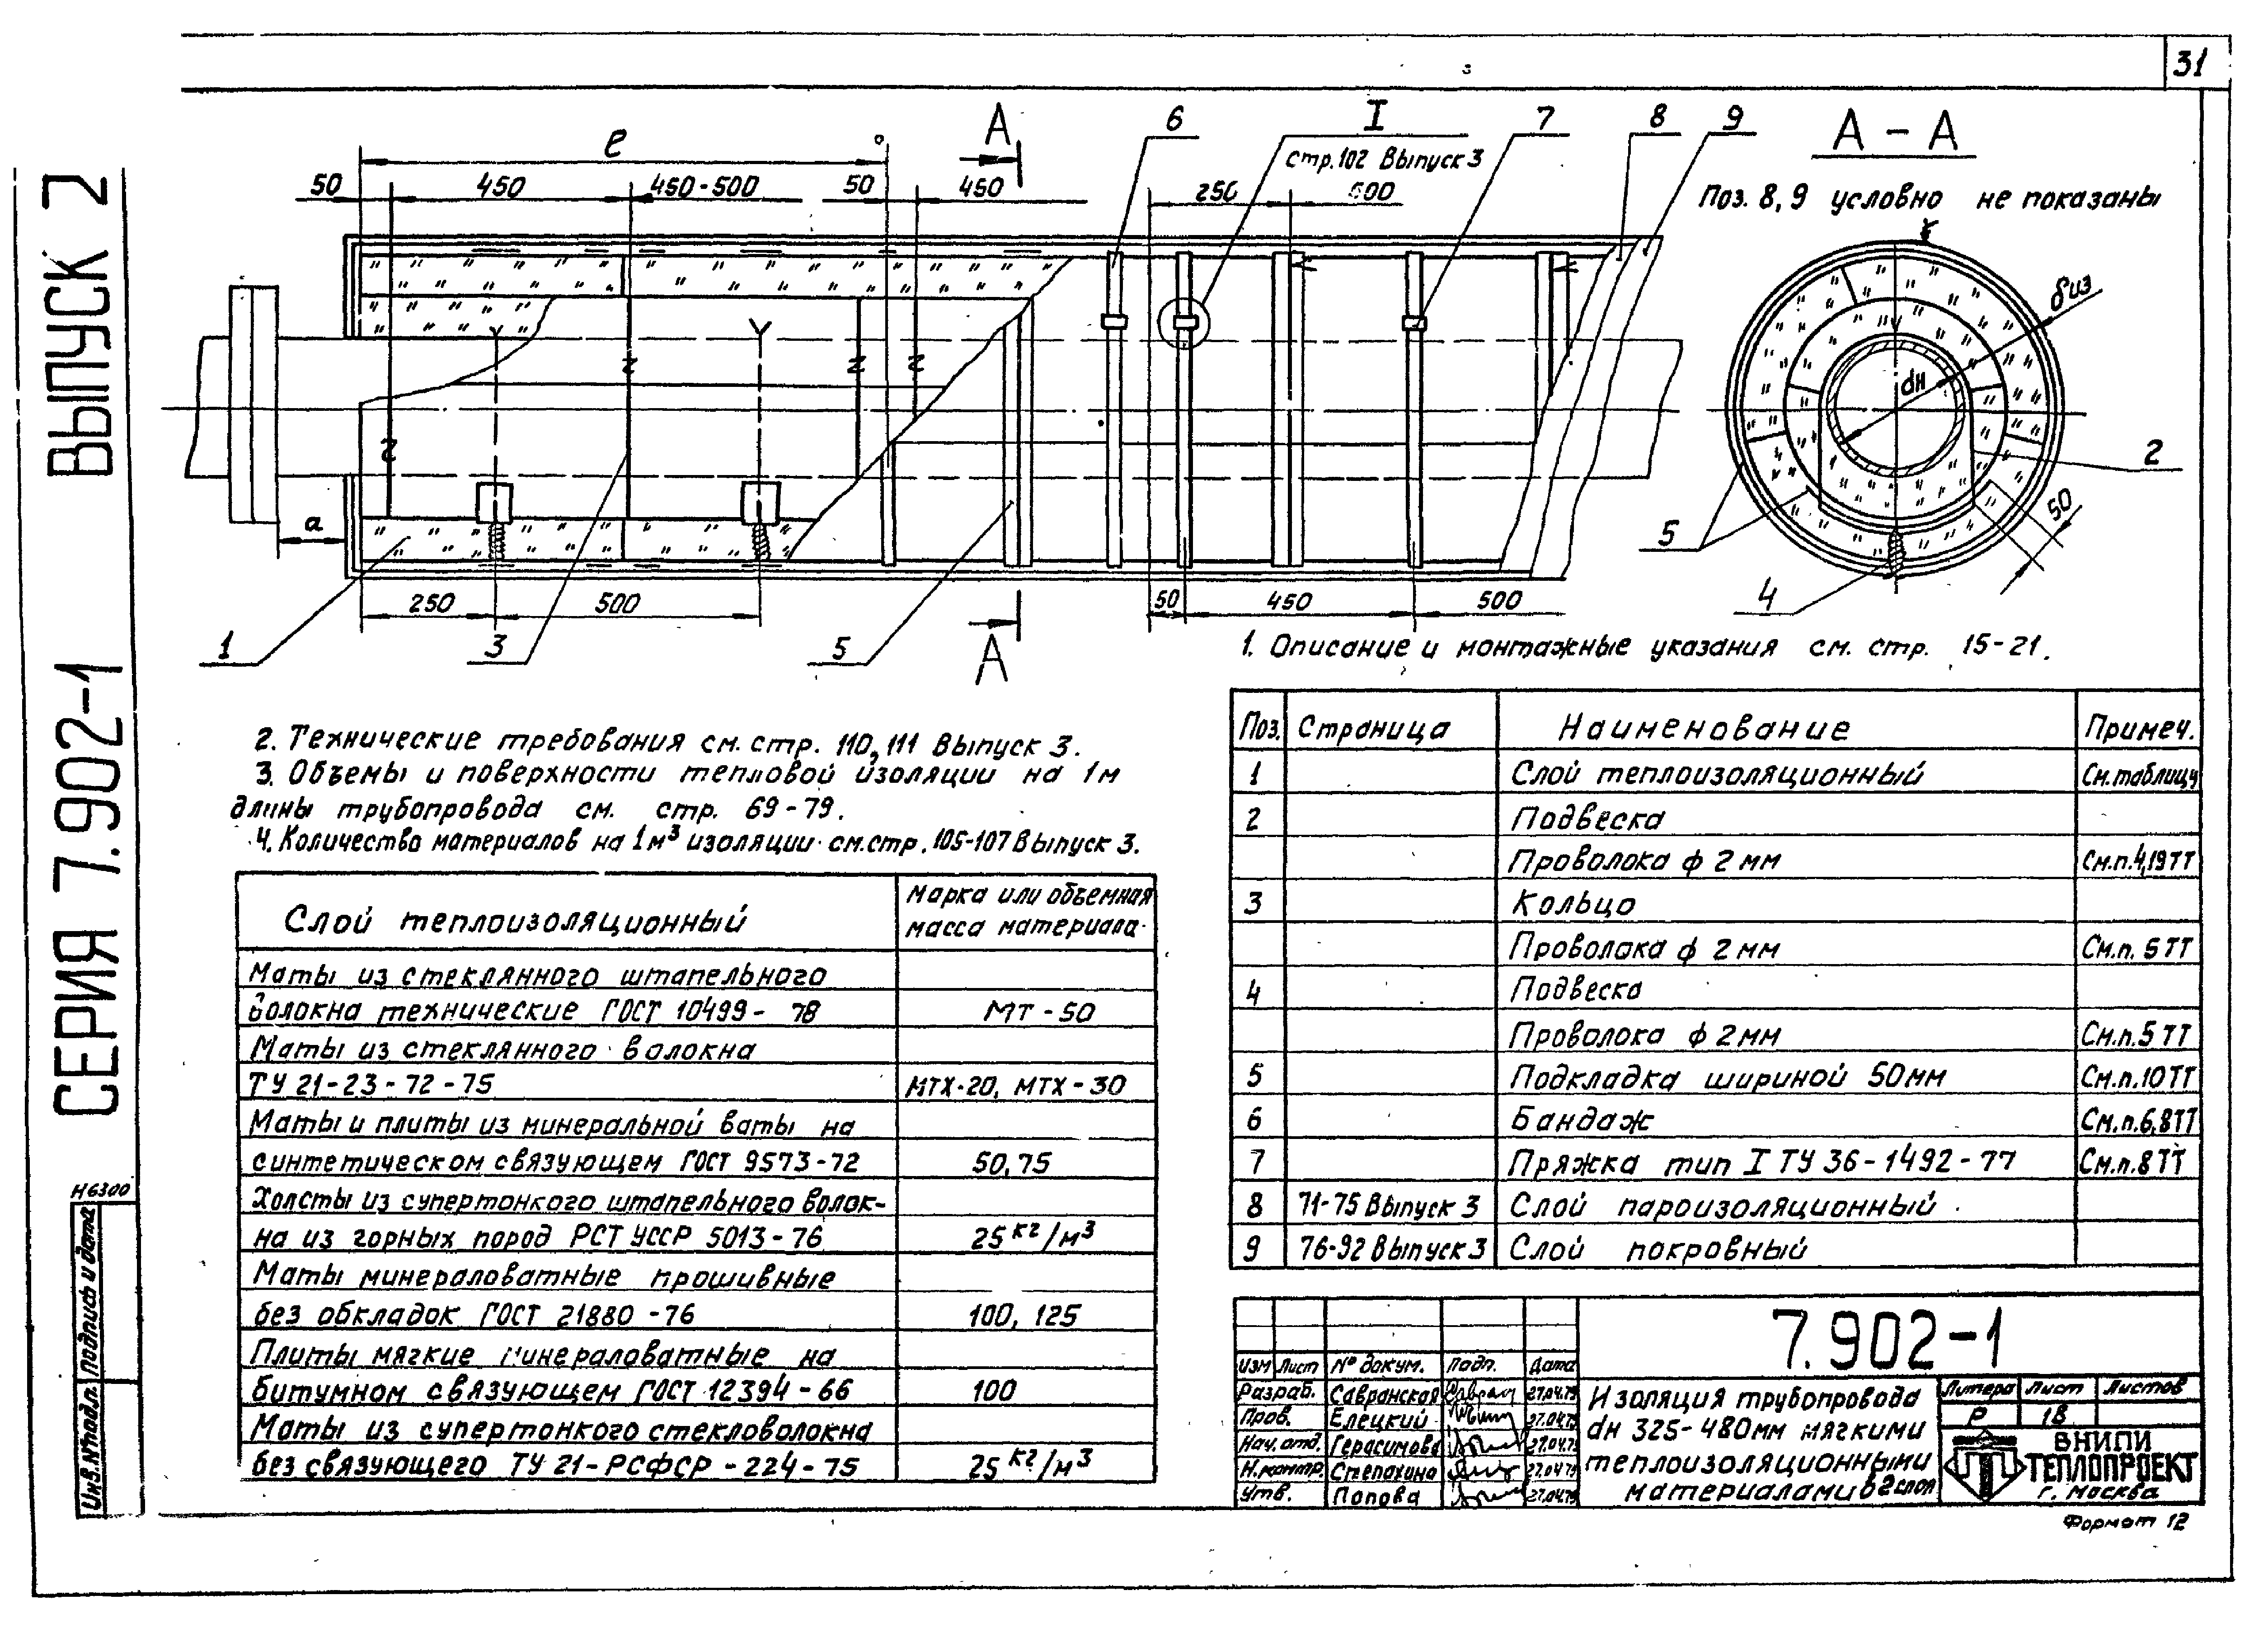 31
СЕРИЯ 7.902-1 ВЫПУСК 2
Н6300
Инв.№подл. Подпись и дата
ℓ
А
6
I
7
8
9
стр.102 Выпуск 3
50
450
450-500
50
450
250
500
а
250
500
50
450
500
1
3
5
А
А - А
Поз. 8, 9 условно не показаны
δиз
dн
2
50
5
4
1. Описание и монтажные указания см. стр. 15-21.
2. Технические требования см. стр. 110, 111 Выпуск 3.
3. Объемы и поверхности тепловой изоляции на 1м
длины трубопровода см. стр. 69-79.
4. Количество материалов на 1м³ изоляции см.стр. 105-107 Выпуск 3.
Слой теплоизоляционный
Марка или объемная
масса материала
Маты из стеклянного штапельного
волокна технические ГОСТ 10499-78 МТ-50
Маты из стеклянного волокна
ТУ 21-23-72-75 МТХ-20, МТХ-30
Маты и плиты из минеральной ваты на
синтетическом связующем ГОСТ 9573-72 50,75
Холсты из супертонкого штапельного волок-
на из горных пород РСТ УССР 5013-76 25 кг/м³
Маты минераловатные прошивные
без обкладок ГОСТ 21880-76 100, 125
Плиты мягкие минераловатные на
битумном связующем ГОСТ 12394-66 100
Маты из супертонкого стекловолокна
без связующего ТУ 21-РСФСР-224-75 25 кг/м³
Поз. Страница Наименование Примеч.
1 Слой теплоизоляционный См.таблицу
2 Подвеска
Проволока ф 2 мм См.п.4,19ТТ
3 Кольцо
Проволока ф 2 мм См.п. 5 ТТ
4 Подвеска
Проволока ф 2 мм См.п.5 ТТ
5 Подкладка шириной 50мм См.п.10ТТ
6 Бандаж См.п.6,8ТТ
7 Пряжка тип I ТУ 36-1492-77 См.п.8ТТ
8 71-75 Выпуск 3 Слой пароизоляционный
9 76-92 Выпуск 3 Слой покровный
7.902-1
Изм Лист № докум. Подп. Дата
Разраб. Савранская 27.04.79
Пров. Елецкий 27.04.79
Нач. отд. Герасимова 27.04.79
Н.контр. Степахина 27.04.79
Утв. Попова 27.04.79
Изоляция трубопровода
dн 325-480мм мягкими
теплоизоляционными
материалами в 2 слоя
Литера Лист Листов
Р 18
ВНИПИ
ТЕПЛОПРОЕКТ
г. Москва
Формат 12